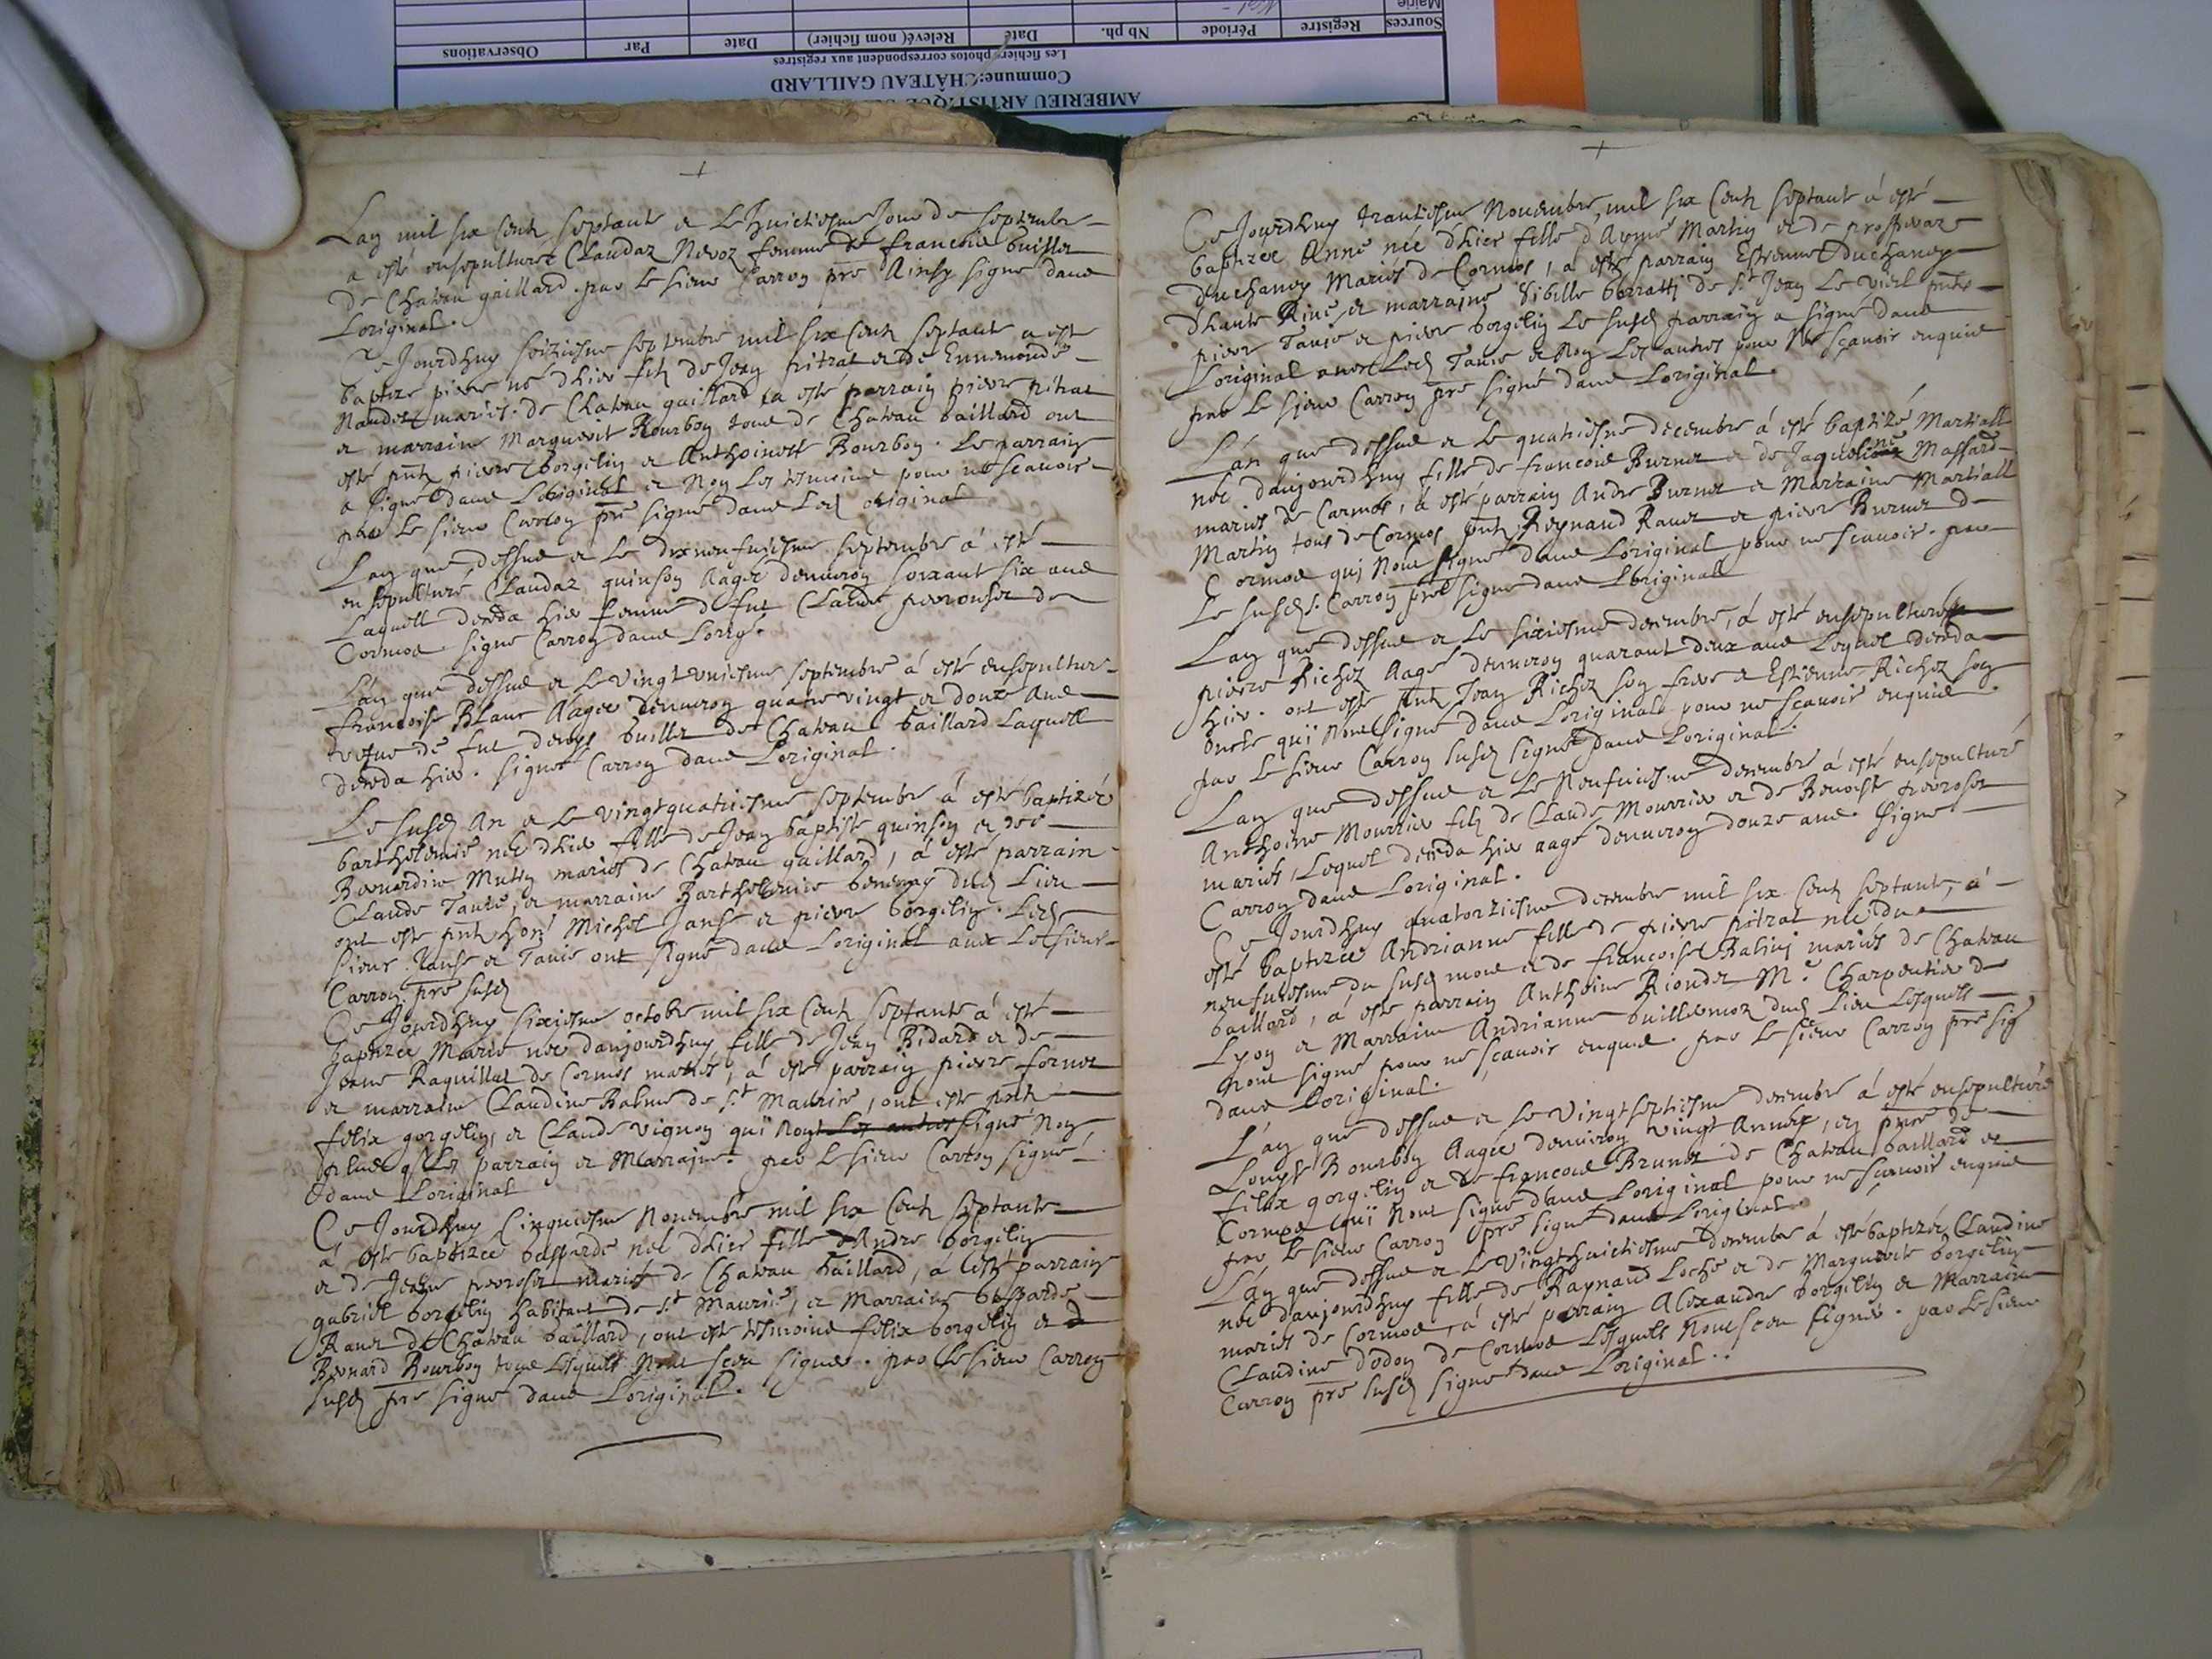 AMBERIEU ARTISTIQUE
Commune: CHÂTEAU GAILLARD
Les fichiers photos correspondent aux registres
Sources Registre Période Nb ph. Daté Relevé (nom fichier) Date Par Observations
Mairie
Lan mil six cents septante et Le huictiesme Jour de septembre
a esté ensepulturée Claudaz Nevoz femme de francois buillet
de Chateau gaillard. par le sieur Carron pre Ainsy signé dans
Loriginal.
Ce Jourdhuy seiziesme septembre mil six cents septante a esté
baptizé pierre né dhier fils de Jean pitrat et de Ennemonde
Naudet mariés. de Chateau gaillard a esté parrain pierre pitrat
et marraine Marguerite Bourbon tous de Chateau Gaillard ont
esté pnts pierre Gorgelin et Anthoinette Bourbon. Le parrain
a signé dans Loriginal et Non Les tesmoins pour ne scavoir
par le sieur Carron pre signé dans Led original
Lan que dessus et Le dixneufviesme septembre á esté
ensepulturé Claudaz quinson Aagée denviron soixante six ans
Laquelle deceda hier femme d fut Claude perrouset de
Cormoz signé Carron dans Lorig.
Lán que dessus et Le vingt uniesme septembre á esté ensepultur
francoise Blanc Aagée denviron quatre vingt et douze Ans
vefve de fut denys buillet de Chateau Gaillard Laquelle
deceda hier. signé Carron dans Loriginal.
Le susd An et Le vingtquatriesme septembre á esté baptizée
bartholemie née dhier fille de Jean baptiste quinson et de
Bernardine Mutin mariés de Chateau gaillard, á esté parrain
Claude Tavie, et marraine Bartholemie dud Lieu
ont esté pnts hon Michel Janse et pierre Gorgelin. Led
sieur Janse et Tavie ont signé dans Loriginal avec Led sieur
Carron. pre susd
Ce Jourdhuy sixiesme octobre mil six cents septante á esté
baptizée Marie née daujourdhuy fille de Jean Bidard et de
Jeane Raquillet de Cormos mariés, á esté parrain pierre fornet
et marraine Claudine Balme de St Maurice, ont esté pnts
felix gorgelin, et Claude vignon quï Nont Les autres signé Non
plus qe Les parrain et Marraine. par le sieur Carron signé
dans Loriginal
Ce Jourdhuy Cinquiesme Novembre mil six cents septante
á esté baptizée gasparde née dhier fille dAndre Gorgelin
et de Jeane perroset mariés de Chateau Gaillard, a esté parrain
gabriel Gorgelin habitant de St Maurice, et Marraine Gasparde
Ravet de Chateau Gaillard, ont esté tesmoins felix Gorgelin et d
Bernard Bourbon tous Lesquels Nont sceu signer. par Le sieur Carron
susd pre signé dans Loriginal.
Ce Jourdhuy trantiesme Novembre, mil six cents septant á esté
baptizée Anne née dhier fille dAymé Martin et de prosperaz
duchanay Mariés de Cormos, a esté parrain Estienne duchanay
dhaute Rive, et marraine Sibille berratti de St Jean Le vieil pnts
pierre Tavie et pierre Gorgelin Le susd parrain a signé dans
Loriginal avec Led Tavie et Non Les autres pour Ne sçavoir enquis
par Le sieur Carron pre signé dans Loriginal.
Lán que dessus et Le quatriesme decembre á esté baptizé Martialle
née daujourdhuy fille de francois Burnet et de Jaqueline Massard
mariés de Cormos, á esté parrain Andre Burnet et Marraine Martialle
Martin tous de Cormos pnts Reynaud Ravet et pierre Burnet d
Cormos qui Nont signé dans Loriginal pour ne scavoir. par
Le susd s. Carron pre signé dans Loriginall
Lan que dessus et Le sixiesme decembre, á esté ensepulturé
pierre Richoz Aagé denviron quarant deux ans Lequel deceda
hier. ont esté pnts Jean Richoz son frere et Estienne Richoz son
oncle quï Nont signé dans Loriginal pour ne scavoir enquis.
par Le sieur Carron susd signé dans Loriginal.
Lan que dessus et Le Neufviesme decembre á esté ensepulturé
Anthoine Mourrier fils de Claude Mourrier et de Benoiste perroset
mariés, Lequel deceda hier aagé denviron douze ans. signé
Carron dans Loriginal.
Ce Jourdhuy quatorziesme decembre mil six cents septante, á
esté baptizée Andrianne fille de pierre pitrat née du
neufviesme du susd mois et de francoise Balivj mariés de Chateau
Gaillard, á esté parrain Anthoine Riondet Me Charpentier de
Lyon et Marraine Andrianne Guillermoz dud Lieu Lesquels
Nont signé pour ne sçavoir enquis. par le sieur Carron pre sig
dans Loriginal.
Lán que dessus et Le Vingtseptiesme decembre á esté ensepulturée
Louyse Bourbon Aagée denviron vingt Années, en pnce de
felix gorgelin et de francois Brunet de Chateau Gaillard et
Cormoz quï Nont signé dans Loriginal pour ne sçavoir enquis
par Le sieur Carron pre signé dans Loriginal.
Lán que dessus et Le Vingthuictiesme decembre á esté baptizée Claudine
née daujourdhuy fille de Raynaud Loche et de Marguerite Gorgelin
mariés de Cormos, á esté parrain Alexandre Gorgelin et Marraine
Claudine Dodon de Cormoz Lesquels Nont sceu signés. par Le sieur
Carron pre susd signé dans Loriginal.